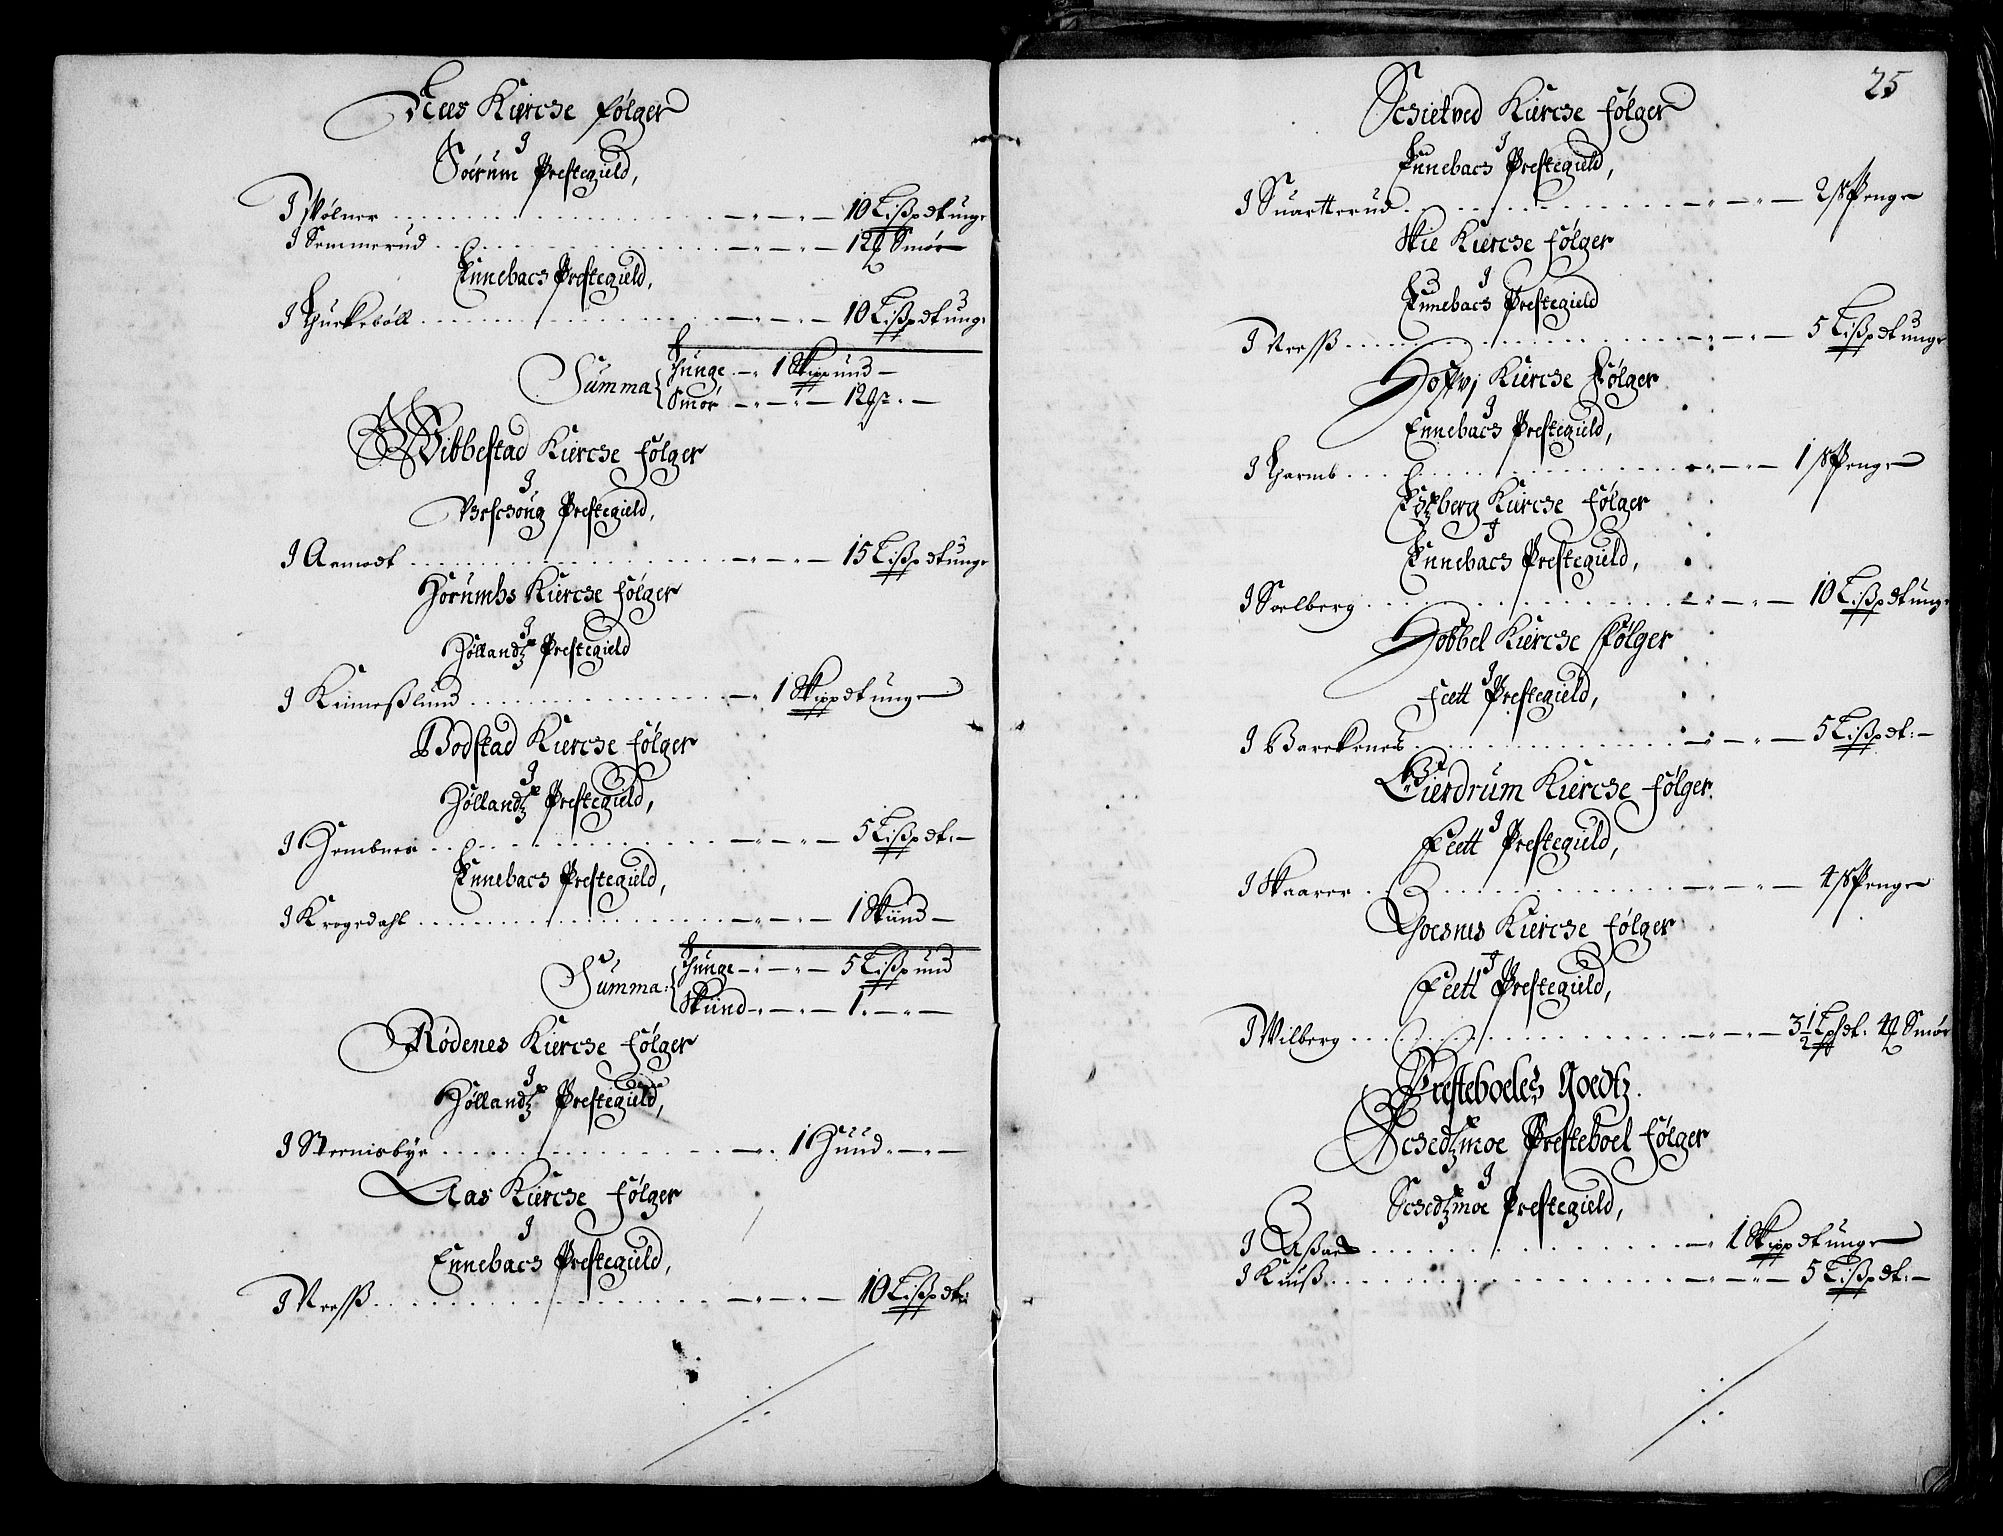 Nees Kircke følger
J
Sörum Prestegield,
J Mölner 10 Lißpd tunge
J Sommerud 12 ℔ Smør
Ennebacs Prestegield,
J Thurkeböll 10 Lißpd tunge
Summa Thunge 1 Skippund
Smör 12 ℔
Wibbestad Kiercke følger
J
Vescsöng Prestegield,
J Aamodt 15 Lißpd tunge
Horumbs Kiercke følger
J
Höllandtz Prestegield
J Kinneßlund 1 Skippd tunge
Bodstad Kiercke følger
J
Höllandtz Prestegield,
J Hembnes 5 Lißpd t:
Ennebacs Prestegield,
J Krogedahl 1 Skiind
Summa: Thunge 5 Lißpund
Skiind 1
Rödenes Kiercke følger
J
Höllandtz Prestegield,
J Steenisbye 1 Huud
Aas Kiercke følger
J
Ennebacs Prestegield,
J Næss 10 Lißpd t:
25
Schietved Kiercke følger
J
Ennebacs Prestegield,
J Suartterud 2 ß Penge
Skie Kiercke følger
J
Ennebacs Prestegield
J Næss 5 Lißpd tunge
Hoffvj Kiercke følger
J
Ennebacs Prestegield,
J Tharmb 1 ß Penge
Kircke følger
J
Ennebacs Prestegield,
J Soelberg 10 Lißpd tunge
Hobbel Kiercke følger
J
Feett Prestegield,
J Barckenes 5 Lißpd t:
Gierdrum Kiercke følger
J
Feett Prestegield,
J Skaarer 4 ß Penge
Goesnes Kiercke følger
J
Feett Prestegield,
J Wilberg 3 1/2 Lpd t: 4 ℔ Smör
Presteboeles Goedtz.
Schedtzmoe Presteboel følger
J
Schedtzmoe Prestegield,
J Aßach 1 Skippd tunge
J Kiuß 5 Lißpd t: